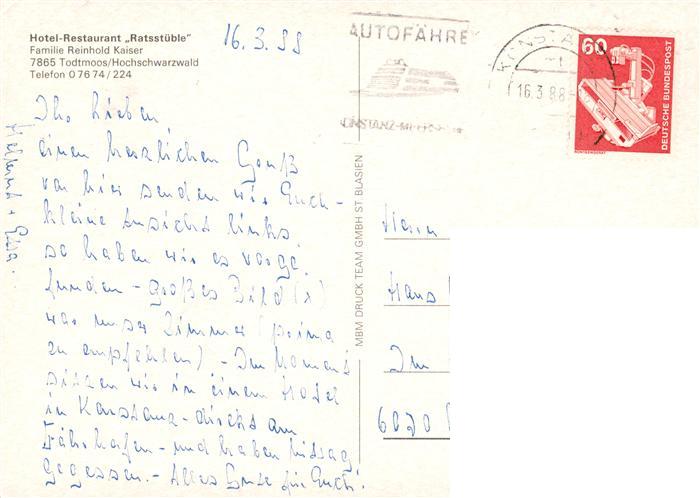 Hotel-Restaurant „Ratsstüble"
Familie Reinhold Kaiser
7865 Todtmoos/Hochschwarzwald
Telefon 0 76 74 / 224
16.3.88
AUTOFÄHRE
KONSTANZ-MEERSBURG
KONSTANZ
16.3.88
60
DEUTSCHE BUNDESPOST
RÖNTGENGERÄT
Ihr Lieben
einen herzlichen Gruß
von hier senden wir Euch -
kleine Ansicht links.
so haben wir es vorge
funden - großes Bild (x)
war unser Zimmer (prima
zu empfehlen) - Im Moment
sitzen wir in einem Hotel
in Konstanz - direkt am
Fährhafen - und haben mittag
gegessen. - Alles Gute für Euch!
Helmut +
MBM DRUCK TEAM GMBH ST BLASIEN
Herrn
Hans
Im
6020